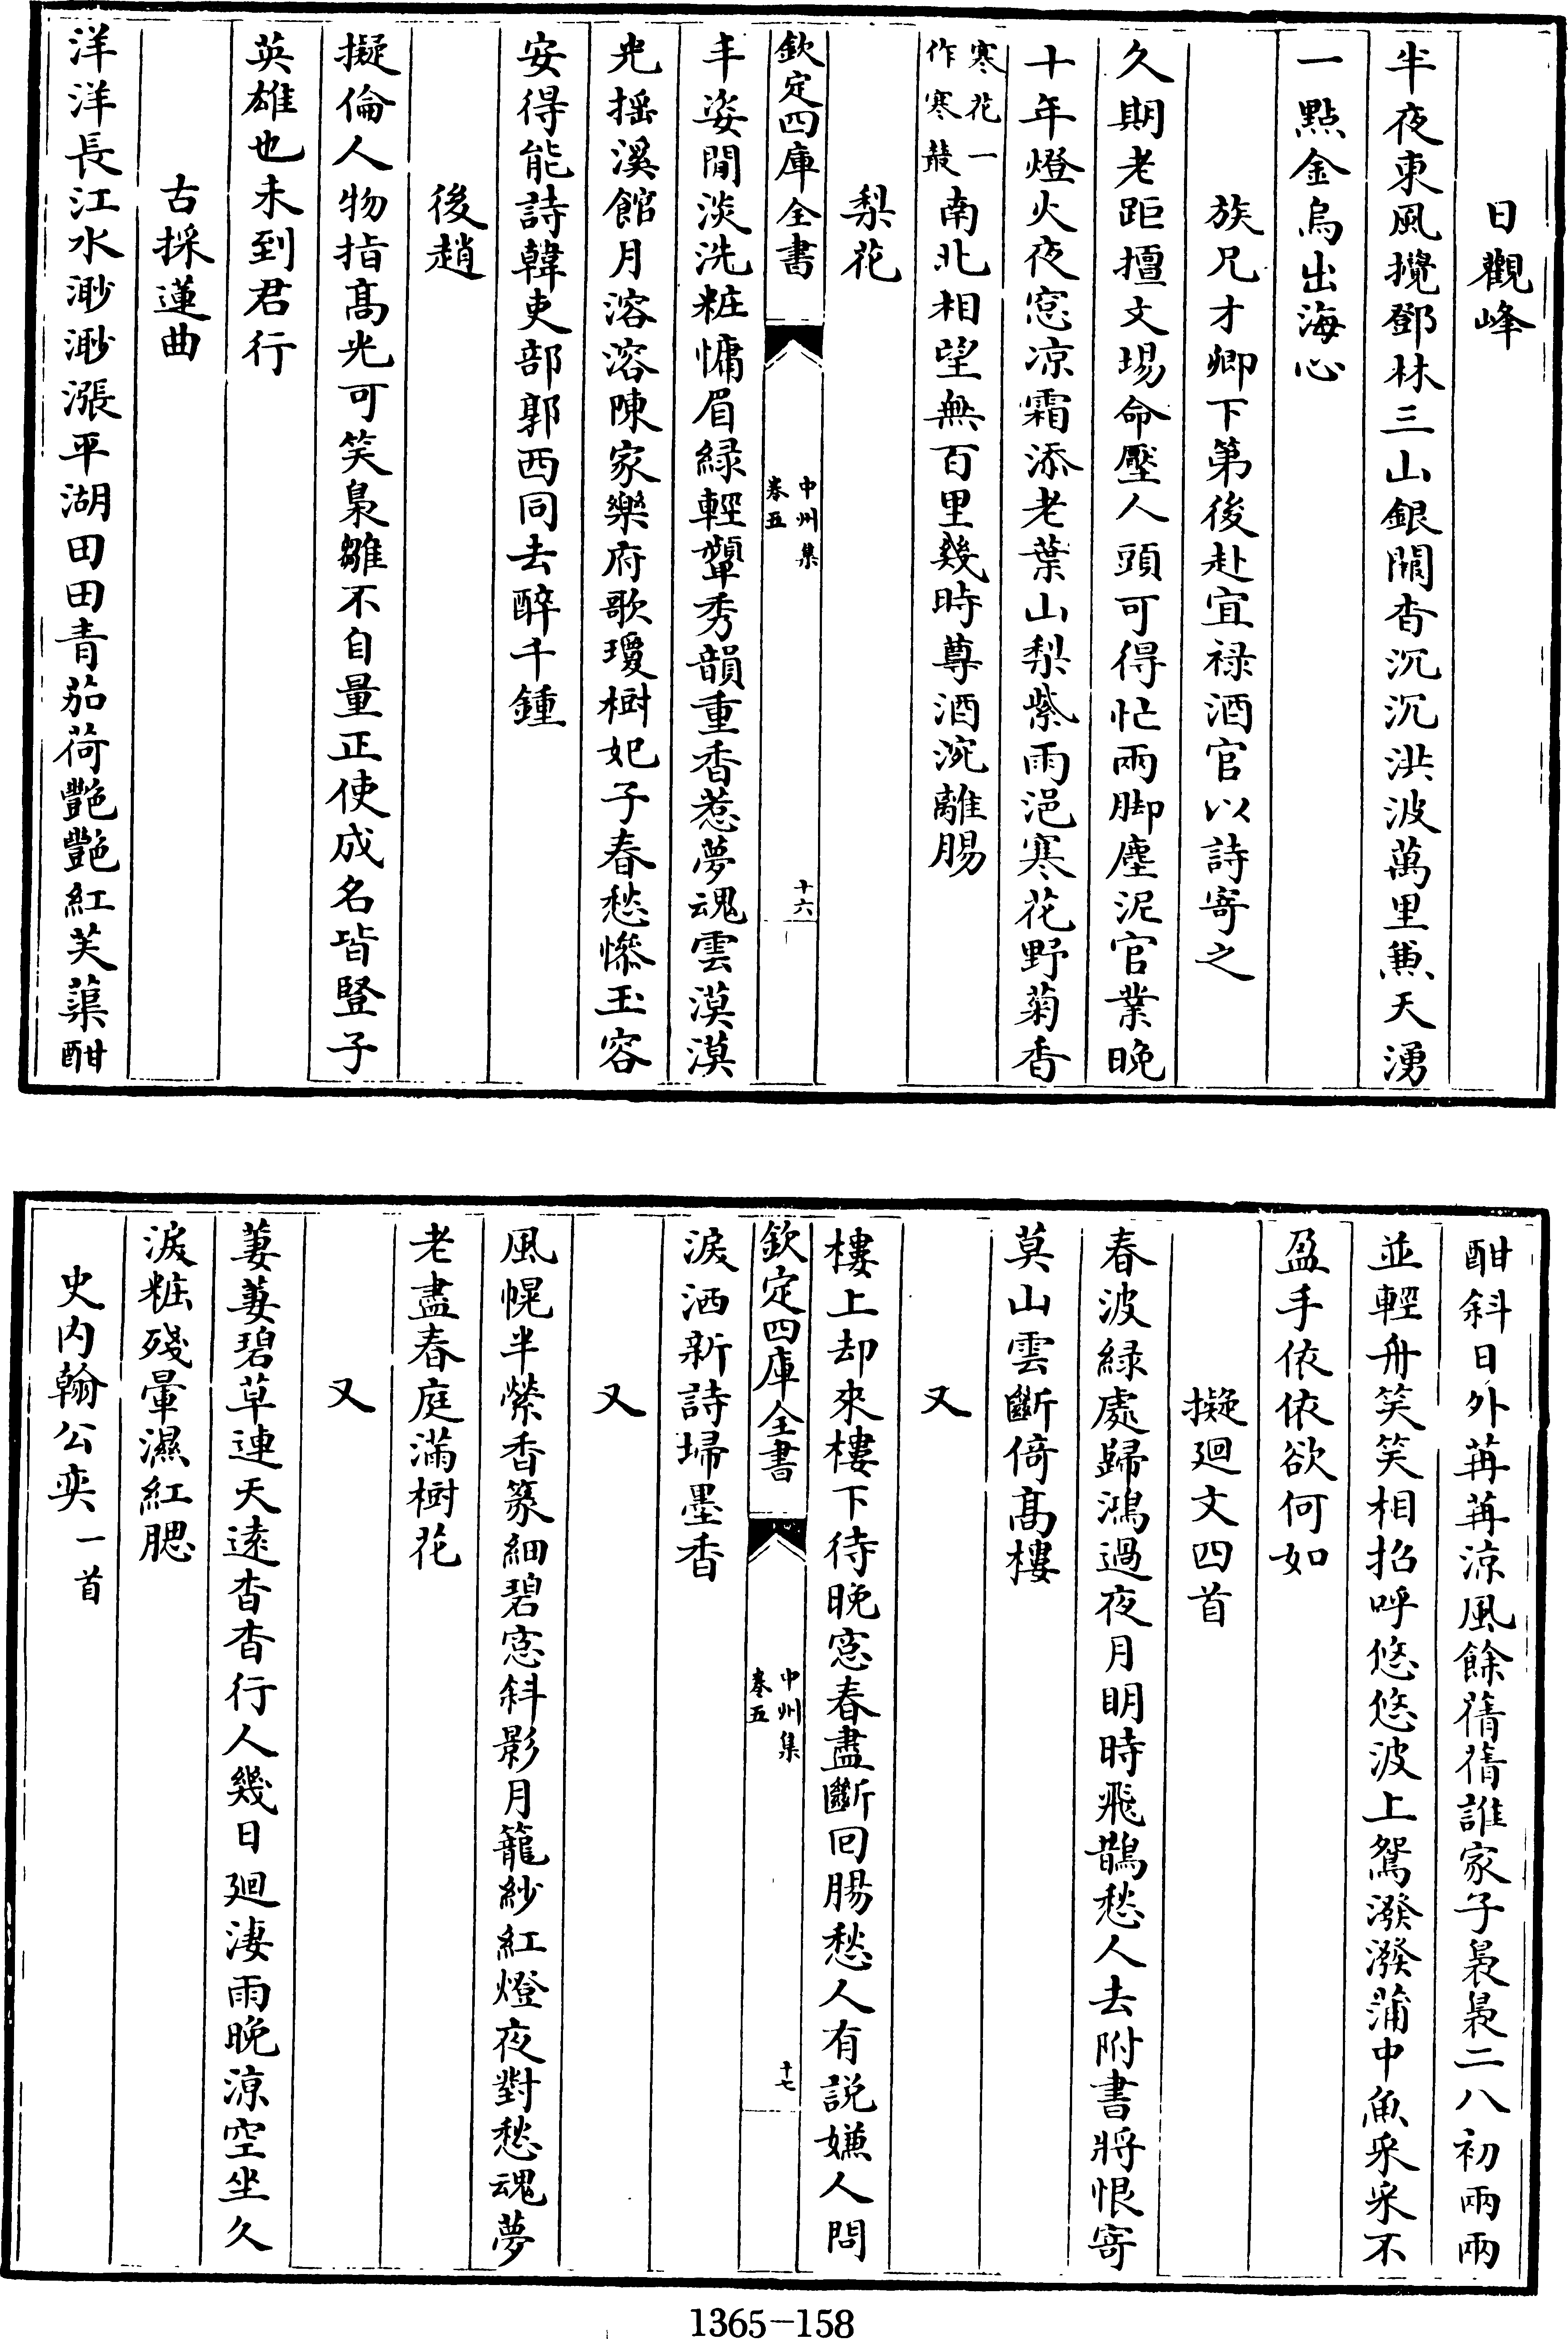 日觀峰
半夜東風攪鄧林三山銀闕杳沉沉洪波萬里兼天湧
一點金烏出海心
族兄才卿下第後赴宜禄酒官以詩寄之
久期老距擅文場命壓人頭可得忙兩脚塵泥官業晚
十年燈火夜窓凉霜添老葉山梨紫雨浥寒花野菊香
寒花一作寒藂南北相望無百里幾時尊酒浣離腸
梨花
欽定四庫全書
中州集
卷五
十六
丰姿閒淡洗粧慵眉緑輕顰秀韻重香惹夢魂雲漠漠
光摇溪館月溶溶陳家樂府歌瓊樹妃子春愁慘玉容
安得能詩韓吏部郭西同去醉千鍾
後趙
擬倫人物指髙光可笑梟雛不自量正使成名皆豎子
英雄也未到君行
古採蓮曲
洋洋長江水渺渺漲平湖田田青茄荷艷艷紅芙蕖酣
酣斜日外苒苒涼風餘蒨蒨誰家子裊裊二八初兩兩
並輕舟笑笑相招呼悠悠波上鴛潑潑蒲中魚采采不
盈手依依欲何如
擬廻文四首
春波緑處歸鴻過夜月明時飛鵲愁人去附書將恨寄
莫山雲斷倚髙樓
又
樓上却來樓下待晚窓春盡斷回腸愁人有説嫌人問
淚洒新詩埽墨香
欽定四庫全書
中州集
卷五
十七
又
風幌半縈香篆細碧窓斜影月籠紗紅燈夜對愁魂夢
老盡春庭滿樹花
又
萋萋碧草連天逺杳杳行人幾日廻淒雨晚涼空坐久
淚粧殘暈濕紅腮
史内翰公奕一首
1365-158